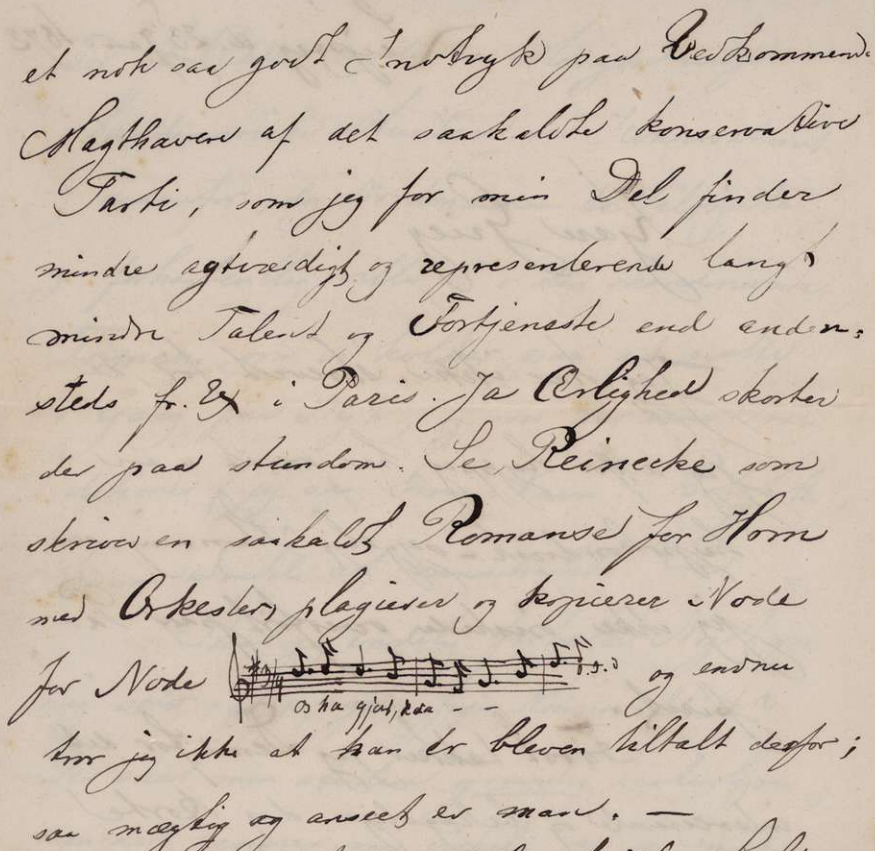 et nok saa godt Indtryk paa Vedkommende
Magthavere af det saakaldte konservative
Parti, som jeg for min Del finder
mindre agtværdigt og representerende langt
mindre Talent og Fortjenste end anden-
steds fr. Ex i Paris. Ja Ærlighed skorter
der paa stundom. Se, Reinecke som
skriver en saakaldt Romanse for Horn
med Orkester, plagierer og kopierer Node
for Node og endnu
Os ha gjort, kva - -
tror jeg ikke at han er bleven tiltalt derfor;
saa mægtig og anseet er man. —